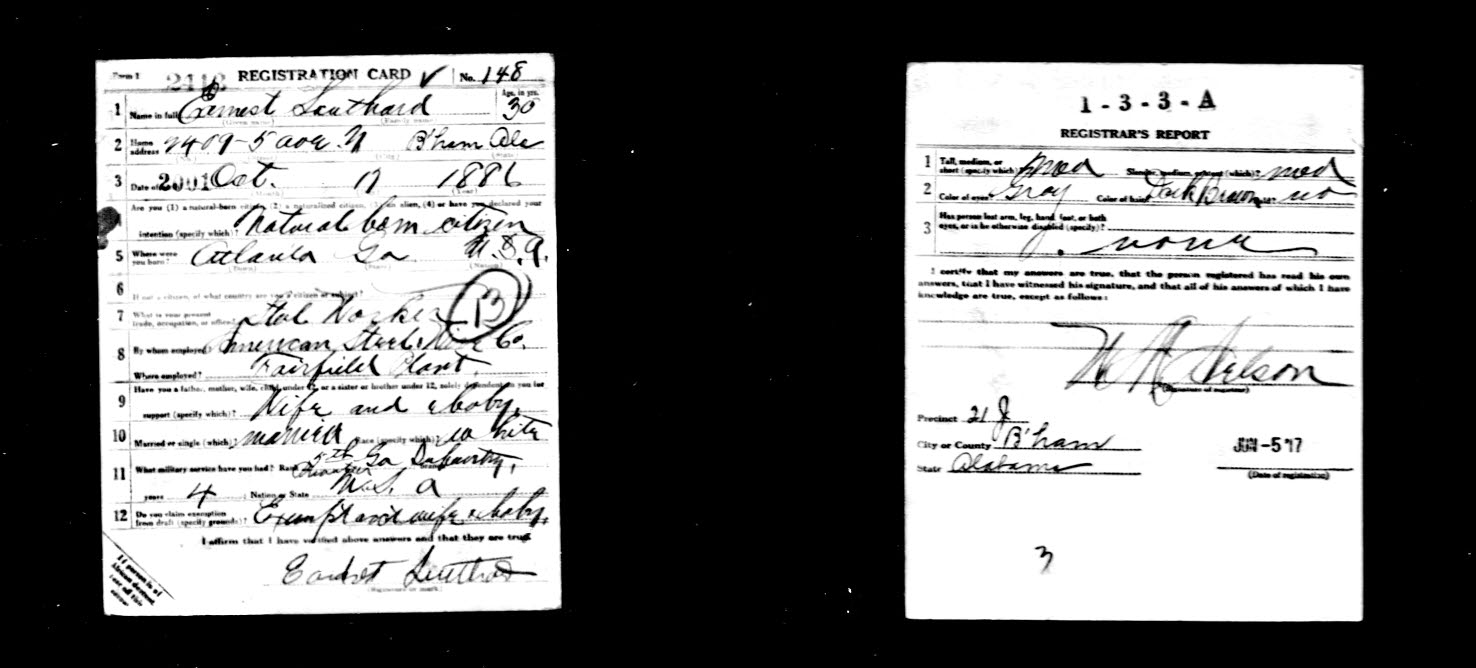 Form 1 REGISTRATION CARD ✓ No. 148
1 Name in full Ernest Southard Age, in yrs. 30
(Given name) (Family name)
2 Home address 2409-5 ave. N B'ham Ala
(City) (State)
3 Date of 2001 Oct. 17 1886
(Month) (Year)
Are you (1) a natural-born citizen, (2) a naturalized citizen, (3) an alien, (4) or have you declared your
intention (specify which)? Natural born citizen
5 Where were you born? Atlanta Ga U.S.A.
(Town) (State) (Nation)
6 If not a citizen, of what country are you a citizen or subject?
7 What is your present trade, occupation, or office? Worker 13
8 By whom employed American Steel & Wire Co.
Where employed? Fairfield Plant.
9 Have you a father, mother, wife, child under 12, or a sister or brother under 12, solely dependent on you for
support (specify which)? Wife and baby.
10 Married or single (which)? married Race (specify which)? white
11 What military service have you had? Rank 5th Ga Infantry,
years 4 ; Nation or State U.S. a
12 Do you claim exemption from draft (specify grounds)? wife & baby.
I affirm that I have verified above answers and that they are true.
(Signature or mark)
If person is of African descent, tear off this corner.
1-3-3-A
REGISTRAR'S REPORT
1 Tall, medium, or short (specify which)? Med Slender, medium, or stout (which)? med
2 Color of eyes? Gray Color of hair? Dark Brown no
3 Has person lost arm, leg, hand, foot, or both
eyes, or is he otherwise disabled (specify)?
none
I certify that my answers are true, that the person registered has read his own
answers, that I have witnessed his signature, and that all of his answers of which I have
knowledge are true, except as follows:
Nelson
(Signature of registrar)
Precinct 21 J
City or County B'ham JUN -5 '17
State Alabama (Date of registration)
3